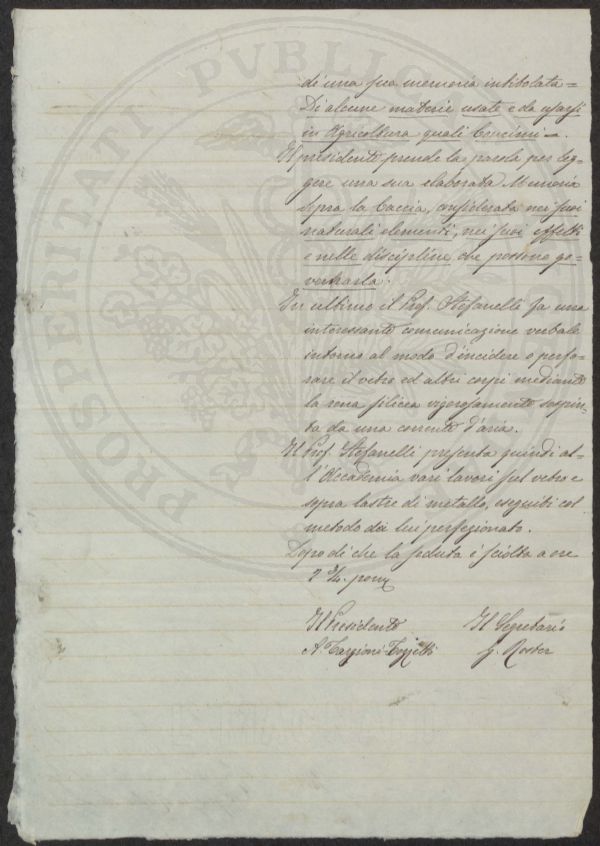 di una sua memoria intitolata =
Di alcune materie usate e da usarsi
in Agricoltura quali Concimi =.
Il presidente prende la parola per leg-
gere una sua elaborata Memoria
sopra la Caccia, considerata nei suoi
naturali elementi, nei suoi effetti
e nelle discipline che possono go-
vernarla.
In ultimo il Prof. Stefanelli fa una
interessante comunicazione verbale
intorno al modo d'incidere o perfo-
rare il vetro ed altri corpi mediante
la rena silicea vigorosamente sospin-
ta da una corrente d'aria.
Il Prof. Stefanelli presenta quindi al-
l'Accademia vari lavori sul vetro e
sopra lastre di metallo, eseguiti col
metodo da lui perfezionato.
Dopo di che la seduta è sciolta a ore
2 3/4 pom
Il Presidente Il Segretario
A. Targioni Tozzetti G. Roster
PROSPERITATI PVBLIC